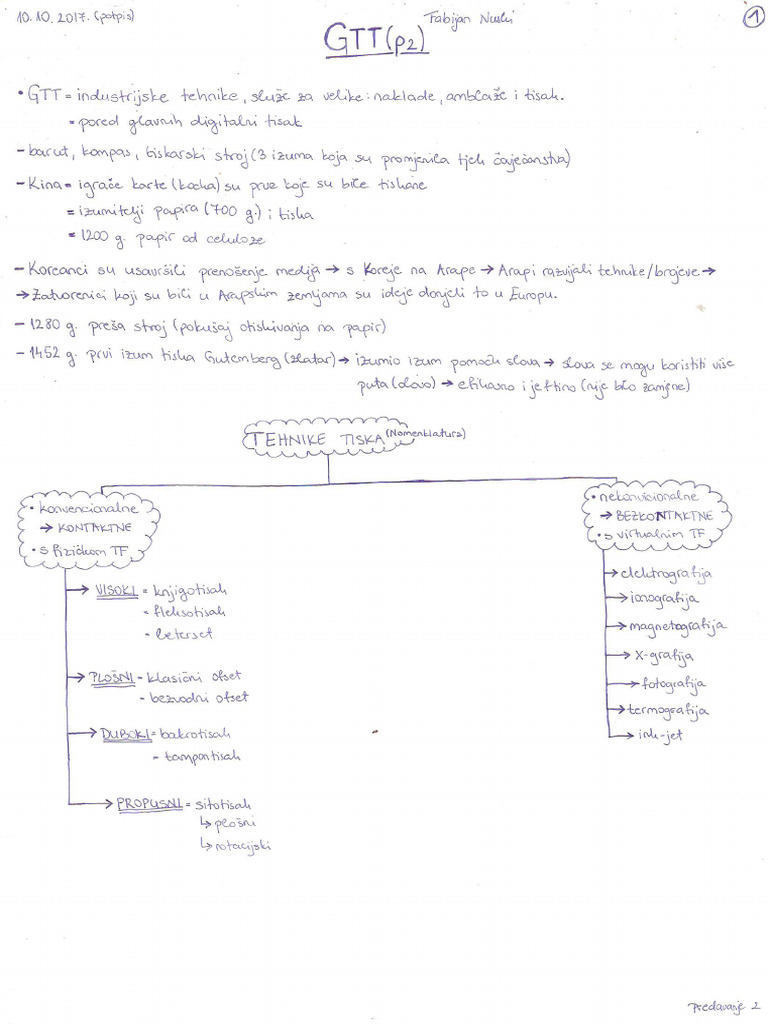 10.10.2017. (potpis)
Fabijan
1
GTT (p2)
• GTT = industrijske tehnike, služe za velike: naklade, amblaže i tisak.
= pored glavnih digitalni tisak
- barut, kompas, tiskarski stroj (3 izuma koja su promjenila tjek čovječanstva)
- Kina = igraće karte (kocka) su prve koje su biće tiskane
= izumitelji papira (700 g.) i tiska
= 1200 g. papir od celuloze
- Koreanci su usavršili prenošenje medija → s Koreje na Arape → Arapi razvijali tehnike/brojeve →
→ Zatvorenici koji su bili u Arapskim zemljama su ideje donjeli to u Europu.
- 1280 g. preša stroj (pokušaj otiskivanja na papir)
- 1452 g. prvi izum tiska Gutemberg (zlatar) → izumio izum pomoću slova → slova se mogu koristiti više
puta (olovo) → efikasno i jeftino (nije bilo zamjene)
TEHNIKE TISKA (Nomenklatura)
• konvencionalne
→ KONTAKTNE
• s fizičkom TF
• nekonvicionalne
→ BEZKONTAKTNE
• s virtualnim TF
→ VISOKI = knjigotisak
= fleksotisak
= leterset
→ PLOŠNI - klasični ofset
- bezvodni ofset
→ DUBOKI = bakrotisak
- tampontisak
→ PROPUSNI = sitotisak
↳ plošni
↳ rotacijski
→ elektrografija
→ ionografija
→ magnetografija
→ x-grafija
→ fotografija
→ termografija
→ ink-jet
Predavanje 2